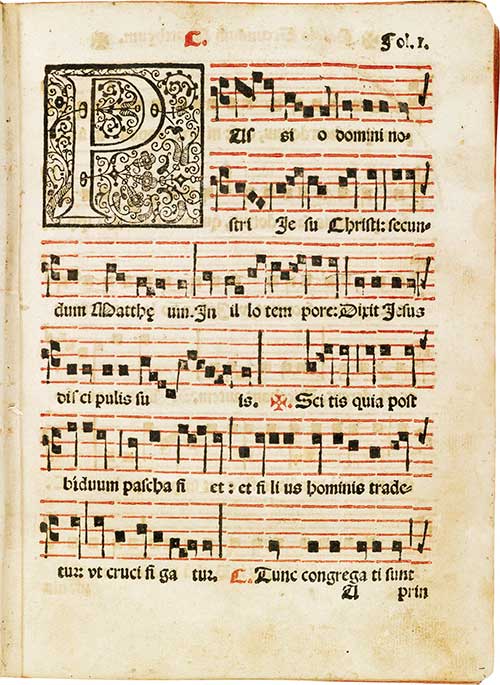 C. Fol. 1.
PAs si o domini no-
stri Je su Christi: secun-
dum Matthę um. In il lo tem pore: Dixit Jesus
dis ci pulis su is. ✠ Sci tis quia post
biduum pascha fi et: et fi li us hominis trade-
tur: vt cruci fi ga tur. C. Tunc congrega ti sunt
A prin